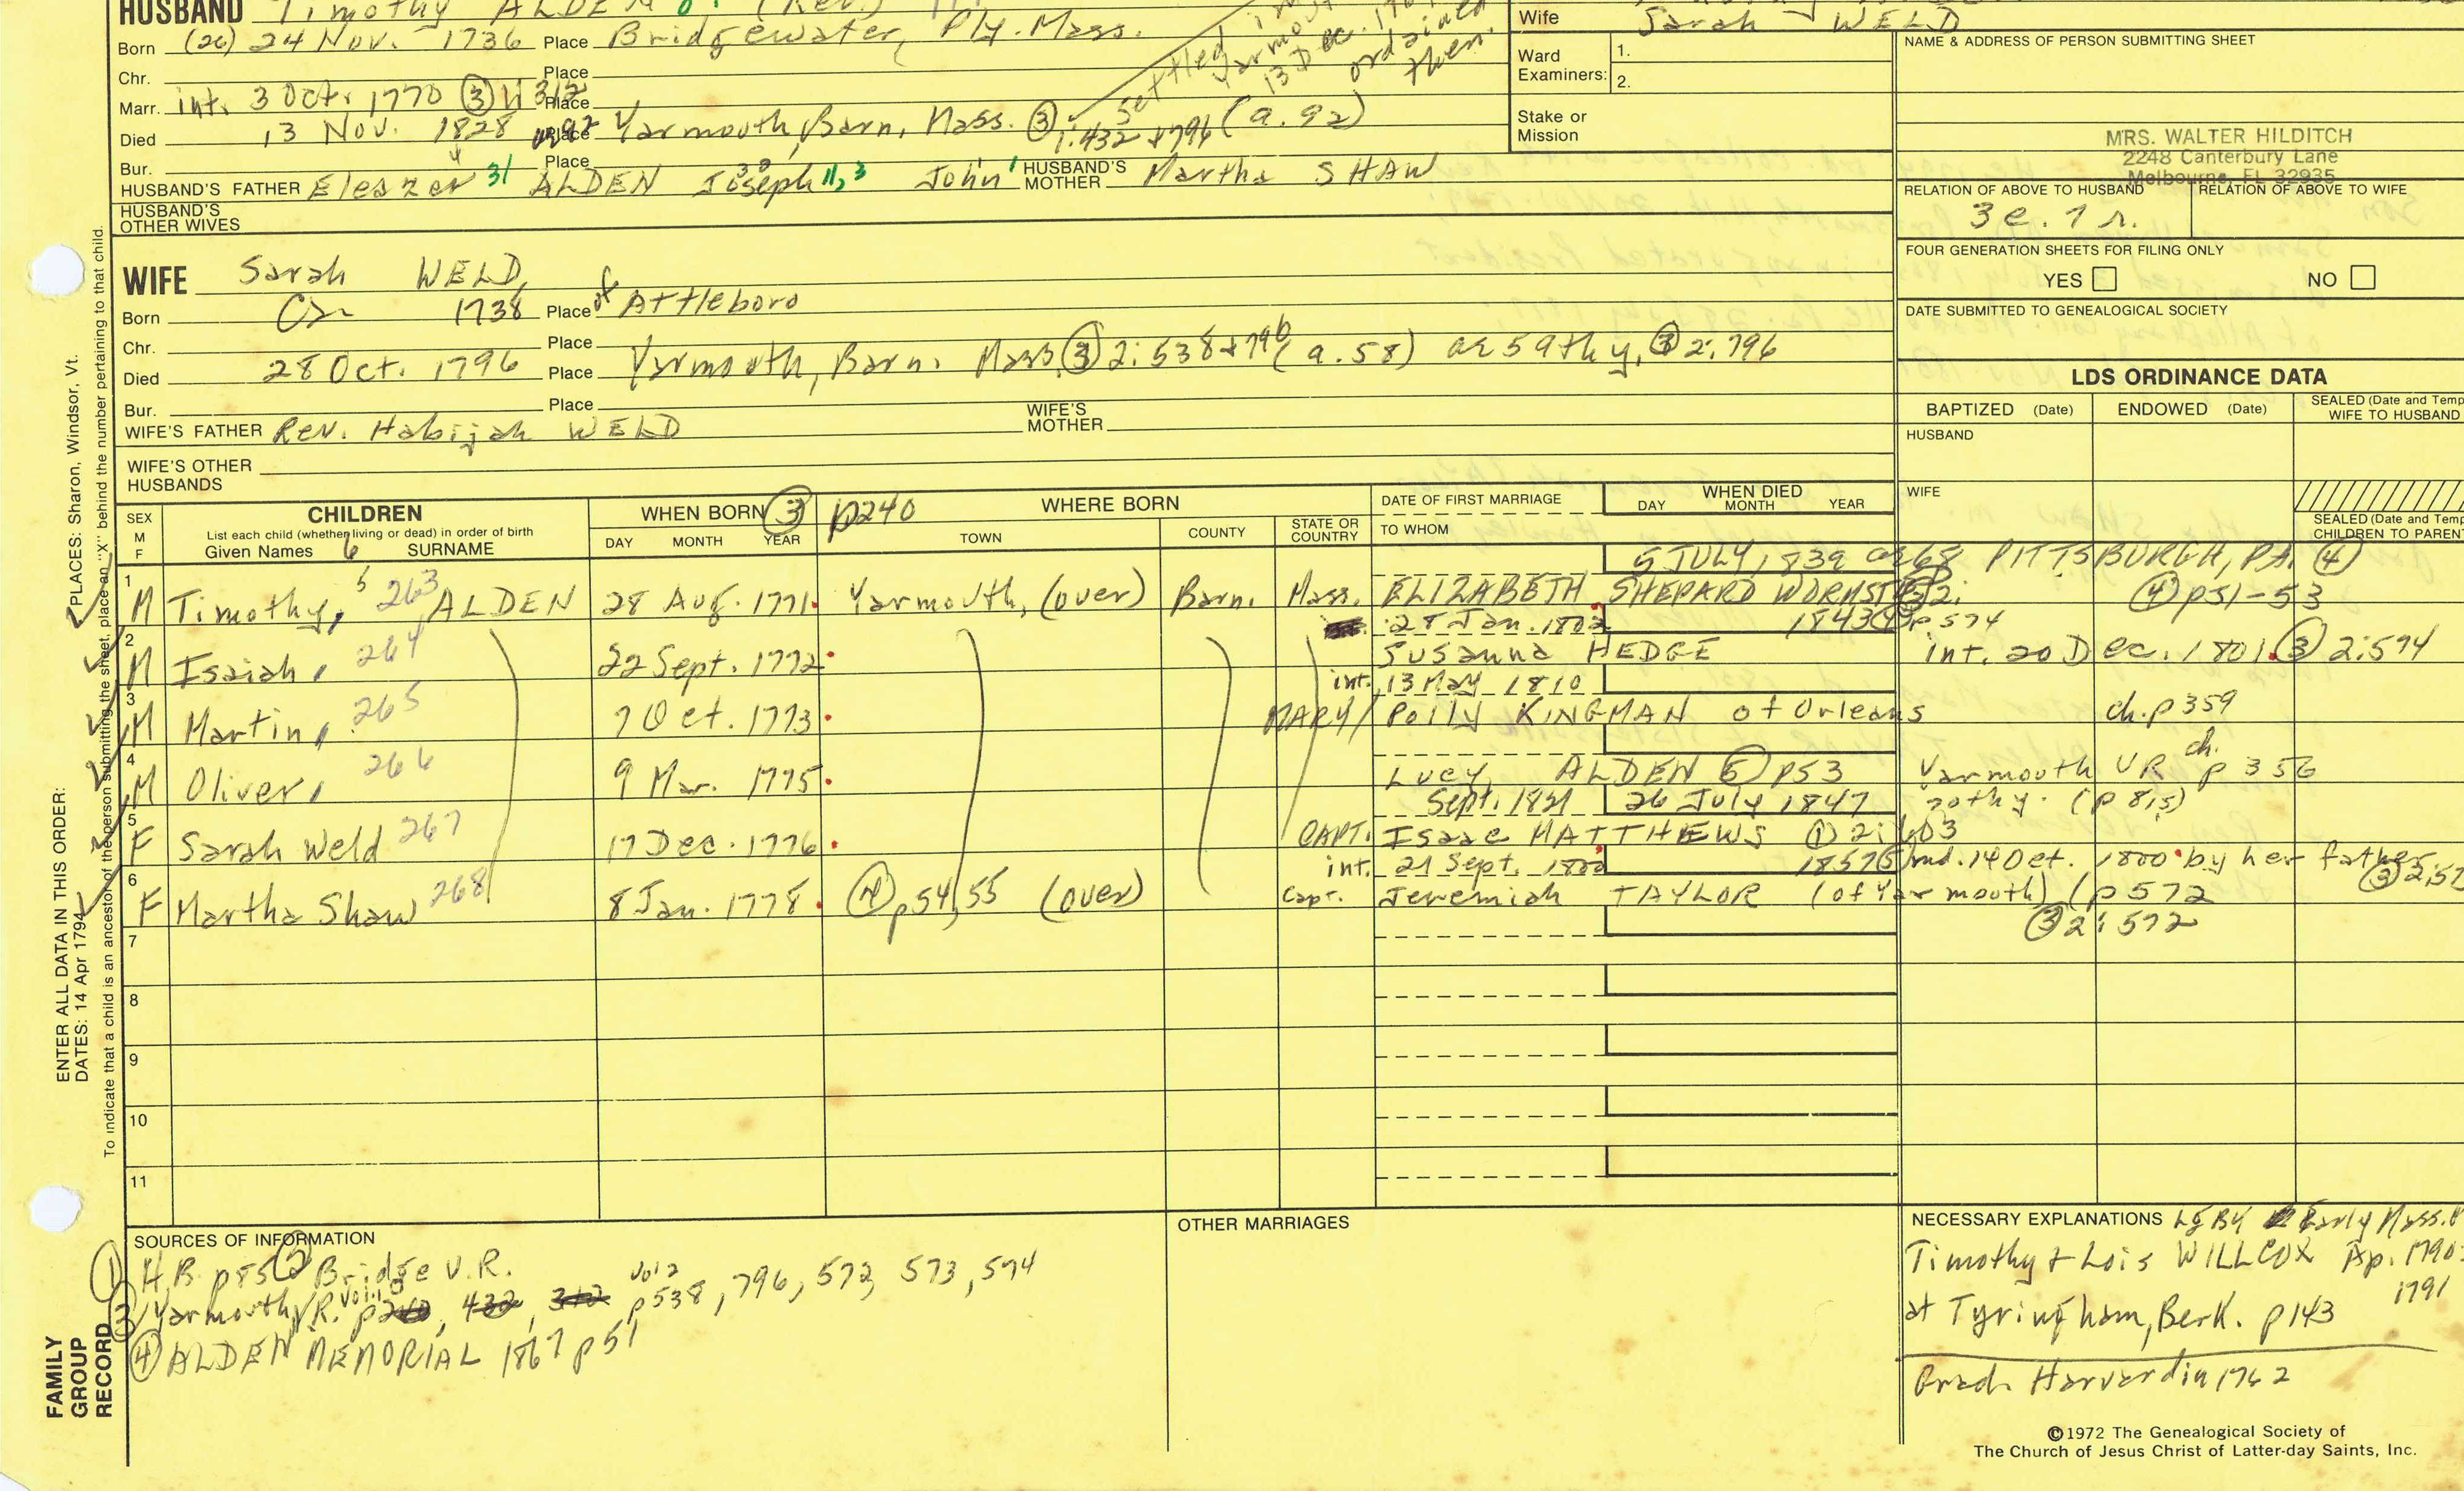 HUSBAND Timothy ALDEN (Rev.)
Born (26) 24 Nov. 1736 Place Bridgewater, Ply. Mass.
Chr. Place
Marr. int. 3 Oct. 1770 ③ 312 Place
Died 13 Nov. 1828 Place Yarmouth, Barn. Mass. ③ 1:432 & 796 (a. 92)
settled in Yarmouth 13 Dec. ordained then.
Bur. Place
HUSBAND'S FATHER Eleazer 31 ALDEN Joseph 11, 3 John 1 HUSBAND'S MOTHER Martha SHAW
HUSBAND'S OTHER WIVES
Wife Sarah WELD
Ward Examiners: 1.
2.
Stake or Mission
NAME & ADDRESS OF PERSON SUBMITTING SHEET
MRS. WALTER HILDITCH
2248 Canterbury Lane
Melbourne, FL 32935
RELATION OF ABOVE TO HUSBAND RELATION OF ABOVE TO WIFE
3c. 7 r.
FOUR GENERATION SHEETS FOR FILING ONLY
YES NO
DATE SUBMITTED TO GENEALOGICAL SOCIETY
WIFE Sarah WELD,
Born Ca 1738 Place of Attleboro
Chr. Place
Died 28 Oct. 1796 Place Yarmouth, Barn. Mass ③ 2:538 & 796 (a. 58) or 59th y. ③ 2:796
Bur. Place
WIFE'S FATHER Rev. Habijah WELD WIFE'S MOTHER
WIFE'S OTHER HUSBANDS
LDS ORDINANCE DATA
BAPTIZED (Date) ENDOWED (Date) SEALED (Date and Temp
WIFE TO HUSBAND
HUSBAND
WIFE
SEALED (Date and Temp
CHILDREN TO PAREN
SEX M F
CHILDREN
List each child (whether living or dead) in order of birth
Given Names 6 SURNAME
WHEN BORN ③ p240
DAY MONTH YEAR
WHERE BORN
TOWN COUNTY STATE OR COUNTRY
DATE OF FIRST MARRIAGE
TO WHOM
WHEN DIED
DAY MONTH YEAR
5 JULY, 1839 ae 68 PITTSBURGH, PA. ④
1 M Timothy, 263 ALDEN 28 Aug. 1771 Yarmouth, (over) Barn. Mass. ELIZABETH SHEPARD WORMSTED ④ p51-53
28 Jan. 1802 1843 ④ p574
2 M Isaiah, 264 22 Sept. 1772 Susanna HEDGE int. 20 Dec. 1801. ③ 2:594
int. 13 May 1810
3 M Martin, 265 7 Oct. 1773 MARY/ Polly KINGMAN of Orleans ch. p359
4 M Oliver, 266 9 Mar. 1775 Lucy ALDEN ⑥ p53 Yarmouth VR ch. p 356
Sept. 1821 26 July 1847 70th y. (p 815)
5 F Sarah Weld 267 17 Dec. 1776 CAPT. Isaac MATTHEWS ① 2:603
int. 21 Sept. 1800 1857 md. 14 Oct. 1800 by her father ③ 2:57
6 F Martha Shaw 268 8 Jan. 1778 ④ p54, 55 (over) Capt. Jeremiah TAYLOR (of Yarmouth) (p572
③ 2:572
7
8
9
10
11
SOURCES OF INFORMATION
① H.B. p85 ② Bridge V.R.
③ Yarmouth V.R. Vol. 1 p240, 432, 312, vol 2 p538, 796, 572, 573, 574
④ ALDEN MEMORIAL 1867 p51
OTHER MARRIAGES
NECESSARY EXPLANATIONS Early Mass.
Timothy & Lois WILLCOX Ap. 1790
1791
at Tyringham, Berk. p143
Grad. Harvard in 1762
©1972 The Genealogical Society of
The Church of Jesus Christ of Latter-day Saints, Inc.
ENTER ALL DATA IN THIS ORDER:
PLACES: Sharon, Windsor, Vt.
DATES: 14 Apr 1794
To indicate that a child is an ancestor of the person submitting the sheet, place an "X" behind the number pertaining to that child.
FAMILY
GROUP
RECORD